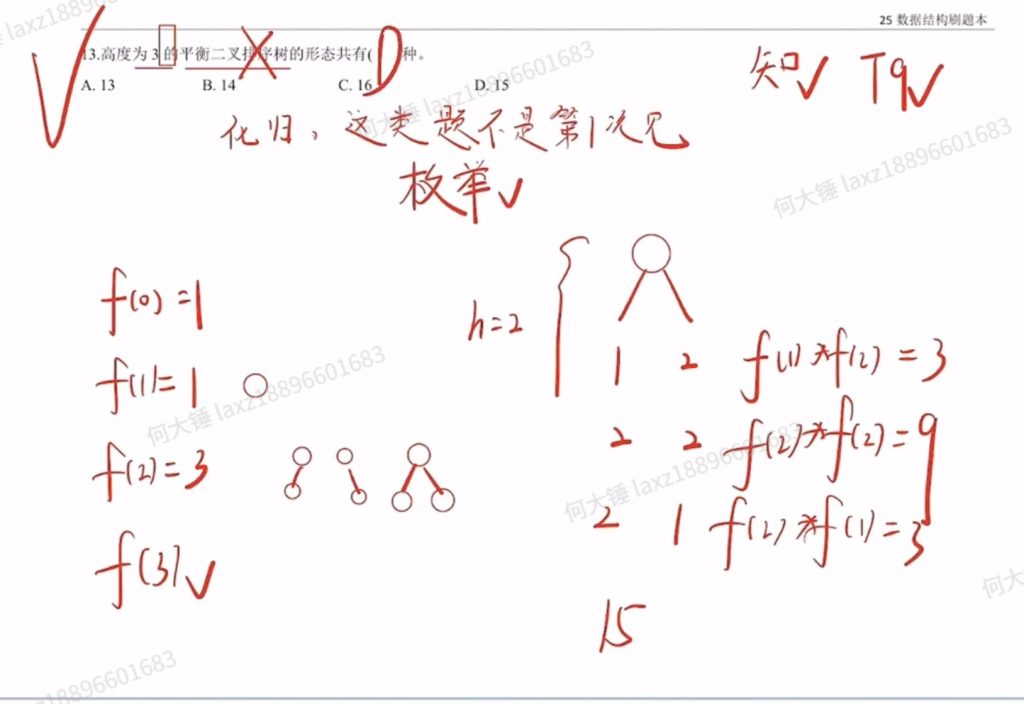 25 数据结构刷题本
13.高度为 3 的平衡二叉排序树的形态共有( D )种。
A. 13 B. 14 C. 16 D. 15
知√ T9√
化归，这类题不是第1次见
枚举√
f(0)=1
f(1)=1
f(2)=3
f(3)√
h=2
1 2 f(1)*f(2)=3
2 2 f(2)*f(2)=9
2 1 f(2)*f(1)=3
15
何大锤 laxz18896601683
何大锤 laxz18896601683
何大锤 laxz18896601683
何大锤 laxz18896601683
何大锤 laxz18896601683